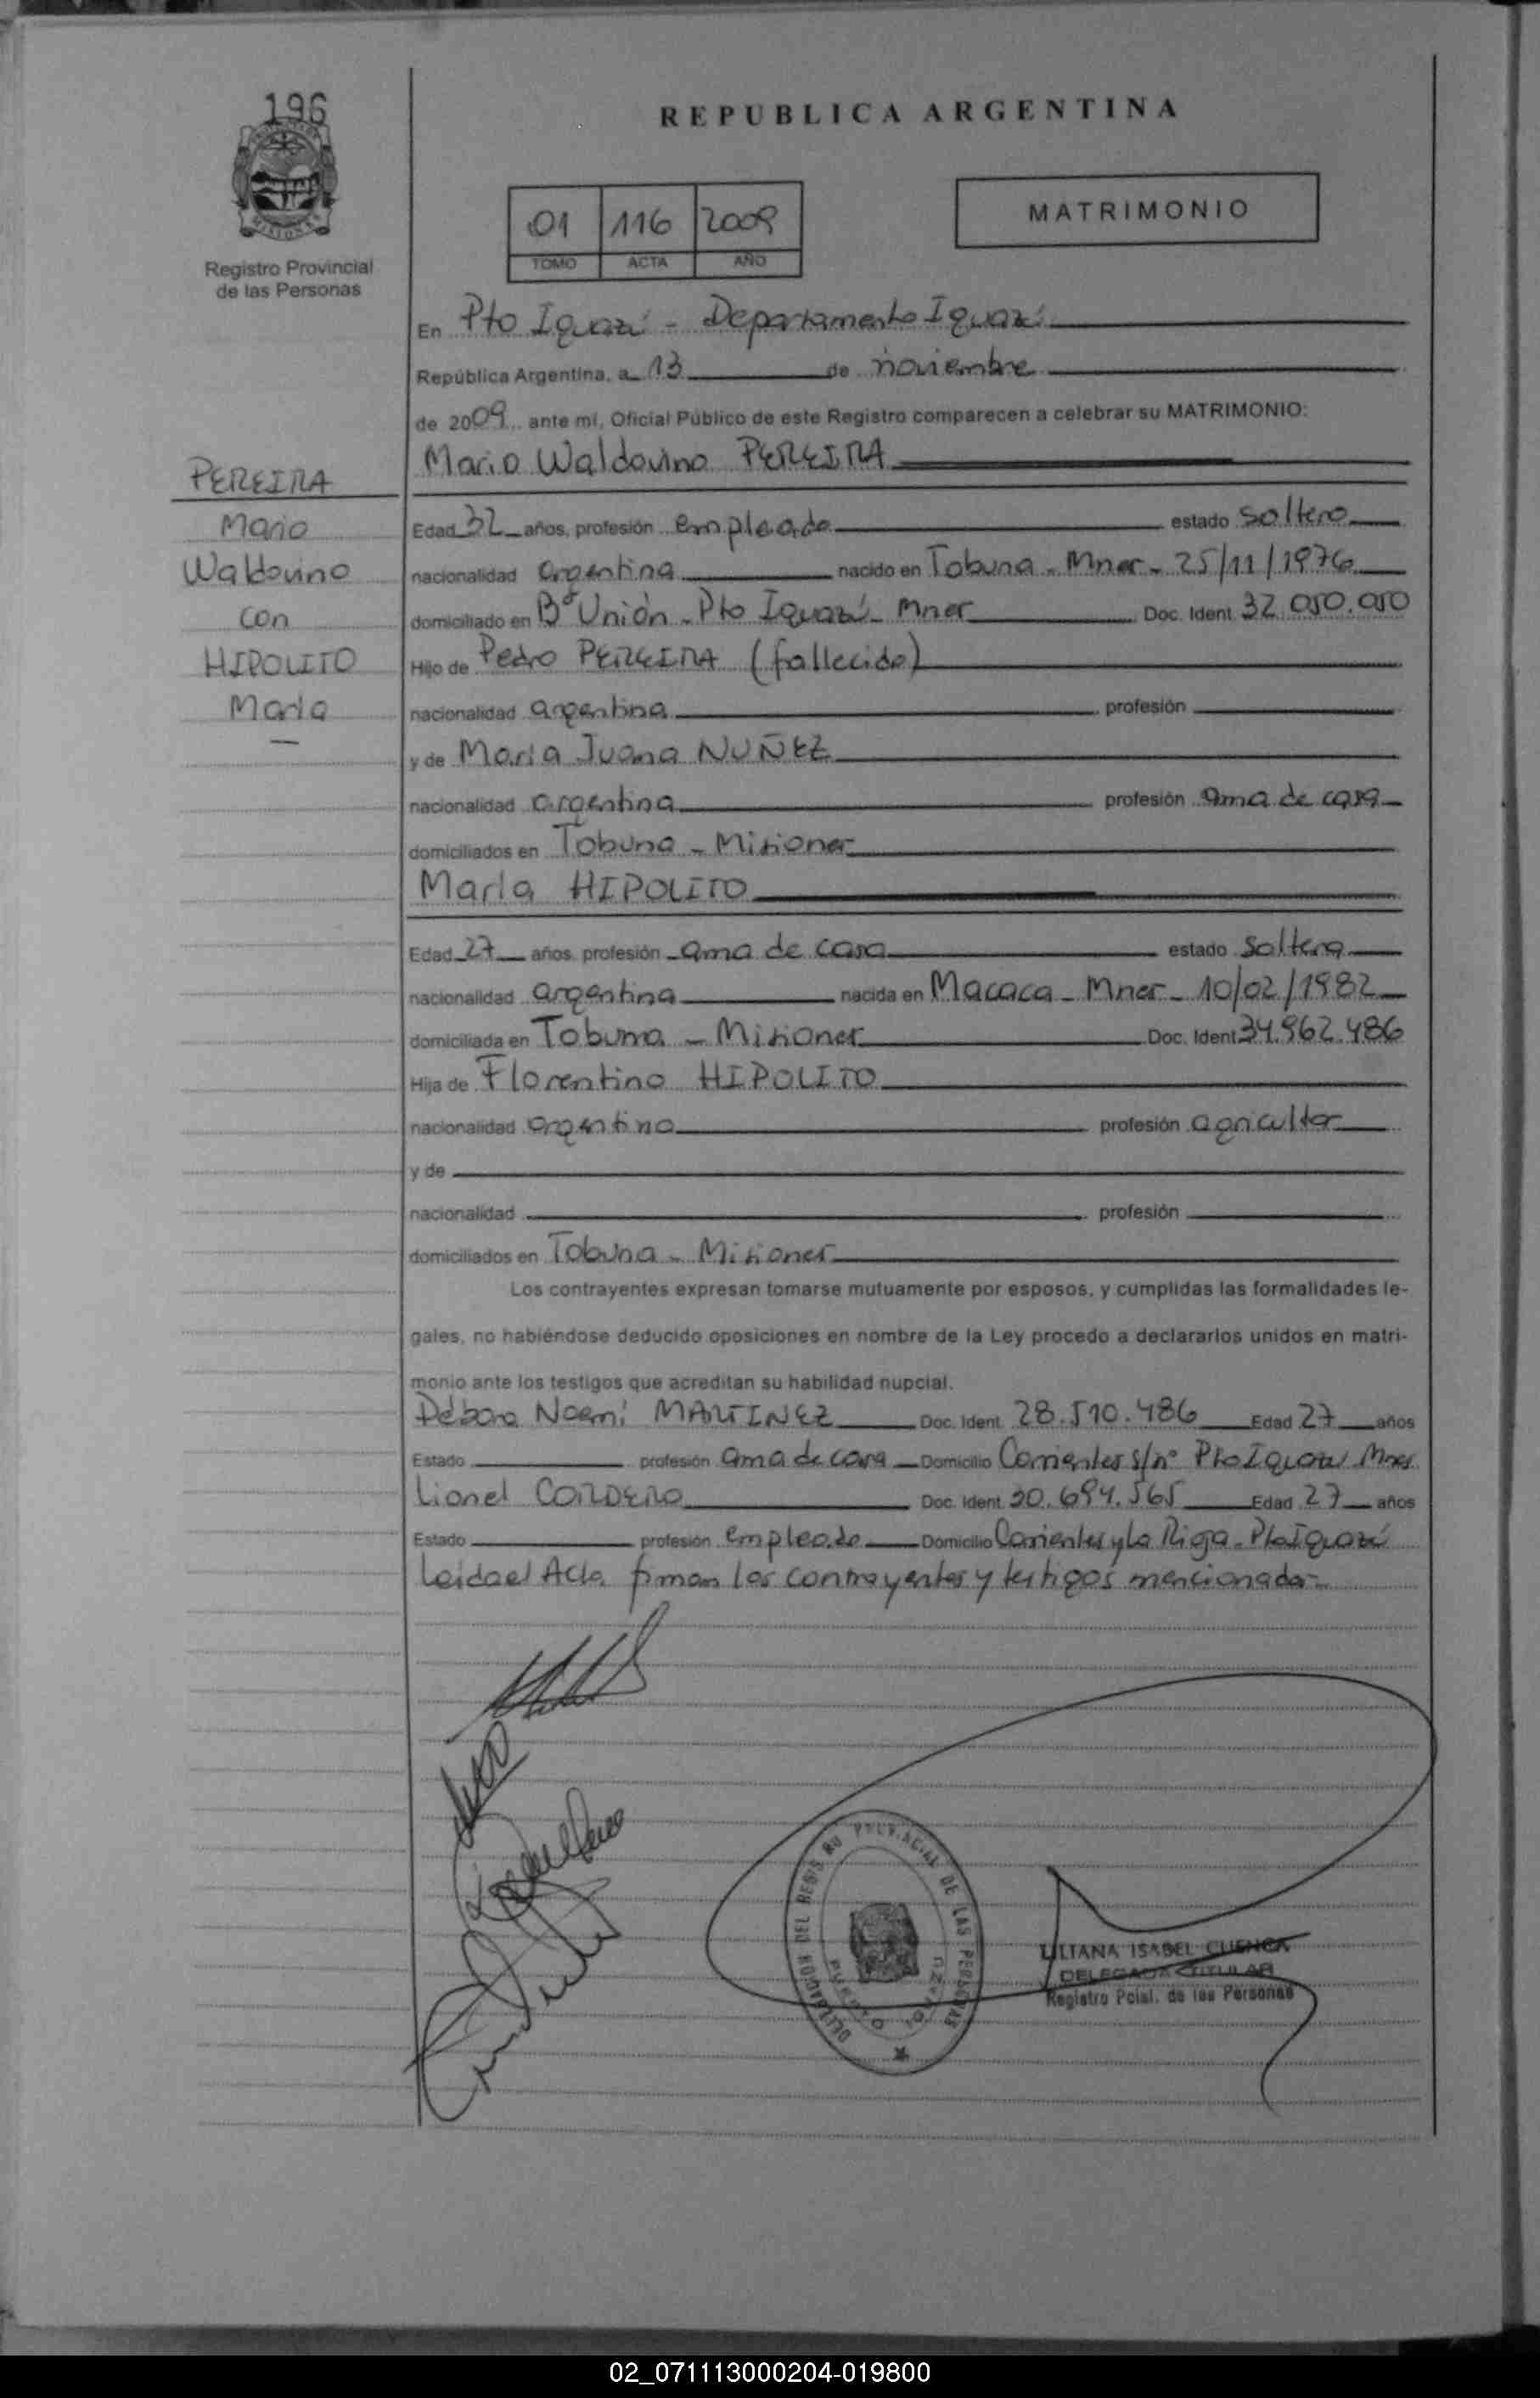 196
REPUBLICA ARGENTINA
MATRIMONIO
01 116 2009
TOMO ACTA AÑO
Registro Provincial
de las Personas
En Pto Iguazú - Departamento Iguazú
República Argentina, a 13 de noviembre
de 2009 ante mí, Oficial Público de este Registro comparecen a celebrar su MATRIMONIO:
Mario Waldovino PEREIRA
PEREIRA
Mario
Waldovino
con
HIPOLITO
Marla
Edad 32 años, profesión empleado estado soltero
nacionalidad argentina nacido en Tobuna - Mnes - 25/11/1976
domiciliado en Bº Unión - Pto Iguazú - Mnes Doc. Ident. 32.050.050
Hijo de Pedro PEREIRA (fallecido)
nacionalidad argentina profesión
y de María Juana NUÑEZ
nacionalidad argentina profesión ama de casa
domiciliados en Tobuna - Misiones
Marla HIPOLITO
Edad 27 años, profesión ama de casa estado soltera
nacionalidad argentina nacida en Macaca - Mnes - 10/02/1982
domiciliada en Tobuna - Misiones Doc. Ident. 34.962.486
Hija de Florentino HIPOLITO
nacionalidad argentino profesión agricultor
y de
nacionalidad profesión
domiciliados en Tobuna - Misiones
Los contrayentes expresan tomarse mutuamente por esposos, y cumplidas las formalidades le-
gales, no habiéndose deducido oposiciones en nombre de la Ley procedo a declararlos unidos en matri-
monio ante los testigos que acreditan su habilidad nupcial.
Débora Noemí MARTINEZ Doc. Ident. 28.510.486 Edad 27 años
Estado profesión ama de casa Domicilio Corrientes s/nº Pto Iguazú Mnes
Lionel CORDERO Doc. Ident. 30.694.565 Edad 27 años
Estado profesión empleado Domicilio Corrientes y La Rioja - Pto Iguazú
Leida el Acta firman los contrayentes y testigos mencionados-
DELEGACION DEL REGISTRO PROVINCIAL DE LAS PERSONAS
PUERTO IGUAZU
LILIANA ISABEL CUENCA
DELEGADA TITULAR
Registro Pcial. de las Personas
02_071113000204-019800